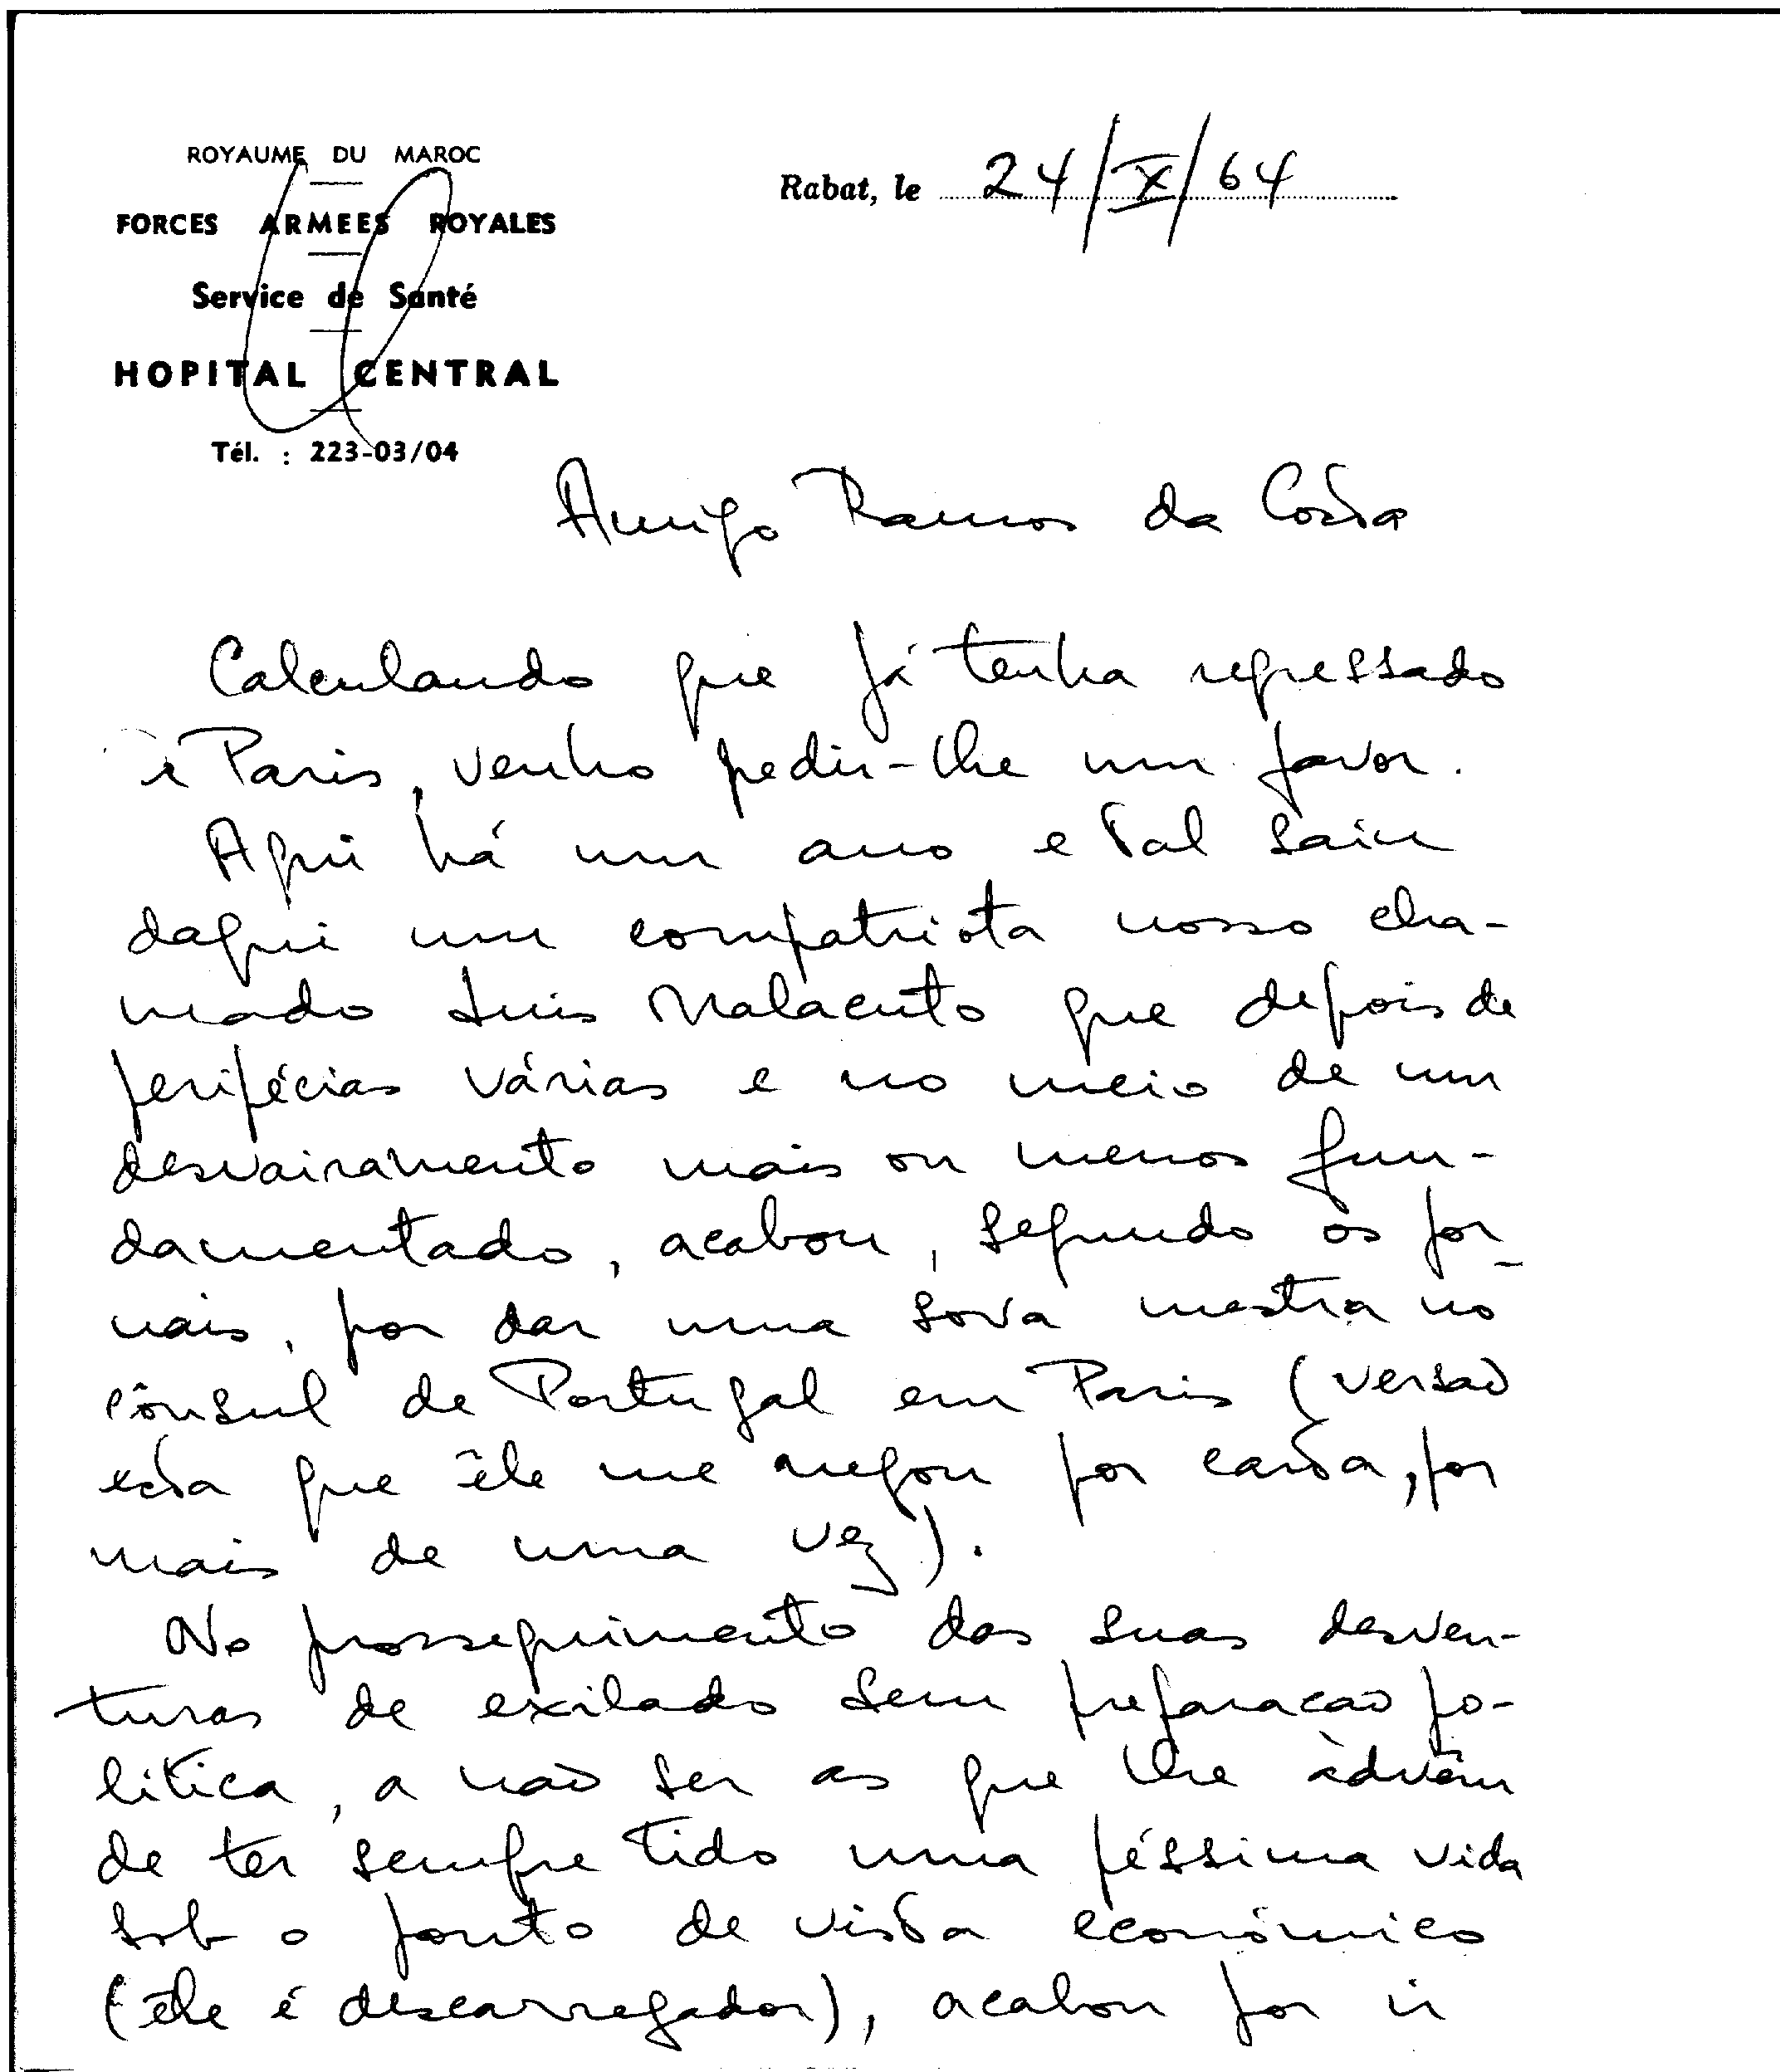 ROYAUME DU MAROC
FORCES ARMEES ROYALES
Service de Santé
HOPITAL CENTRAL
Tél. : 223-03/04
Rabat, le 24/X/64
Amigo Ramos da Costa
Calculando que já tenha regressado
a Paris, venho pedir-lhe um favor.
Aqui há um ano e tal saiu
daqui um compatriota nosso cha-
mado Luis Malacuto que depois de
peripécias várias e no meio de um
desvairamento mais ou menos fun-
damentado, acabou, segundo os jor-
nais, por dar uma sova mestra no
cônsul de Portugal em Paris (versão
esta que êle me negou por carta, por
mais de uma vez).
No prosseguimento das suas desven-
turas de exilado sem preparacao po-
litica, a não ser as que lhe advêm
de ter sempre tido uma péssima vida
sob o ponto de vista económico
(êle é descarregador), acabou por ir